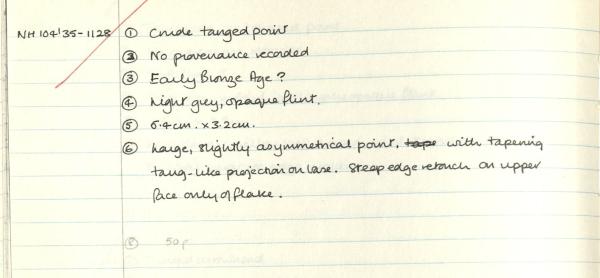 NH 104'35-1128 ① Crude tanged point
② No provenance recorded
③ Early Bronze Age?
④ Light grey, opaque flint.
⑤ 6.4cm. x 3.2cm.
⑥ Large, slightly asymmetrical point, tape with tapering
tang-like projection on base. Steep edge retouch on upper
face only of flake.
⑧ 50p